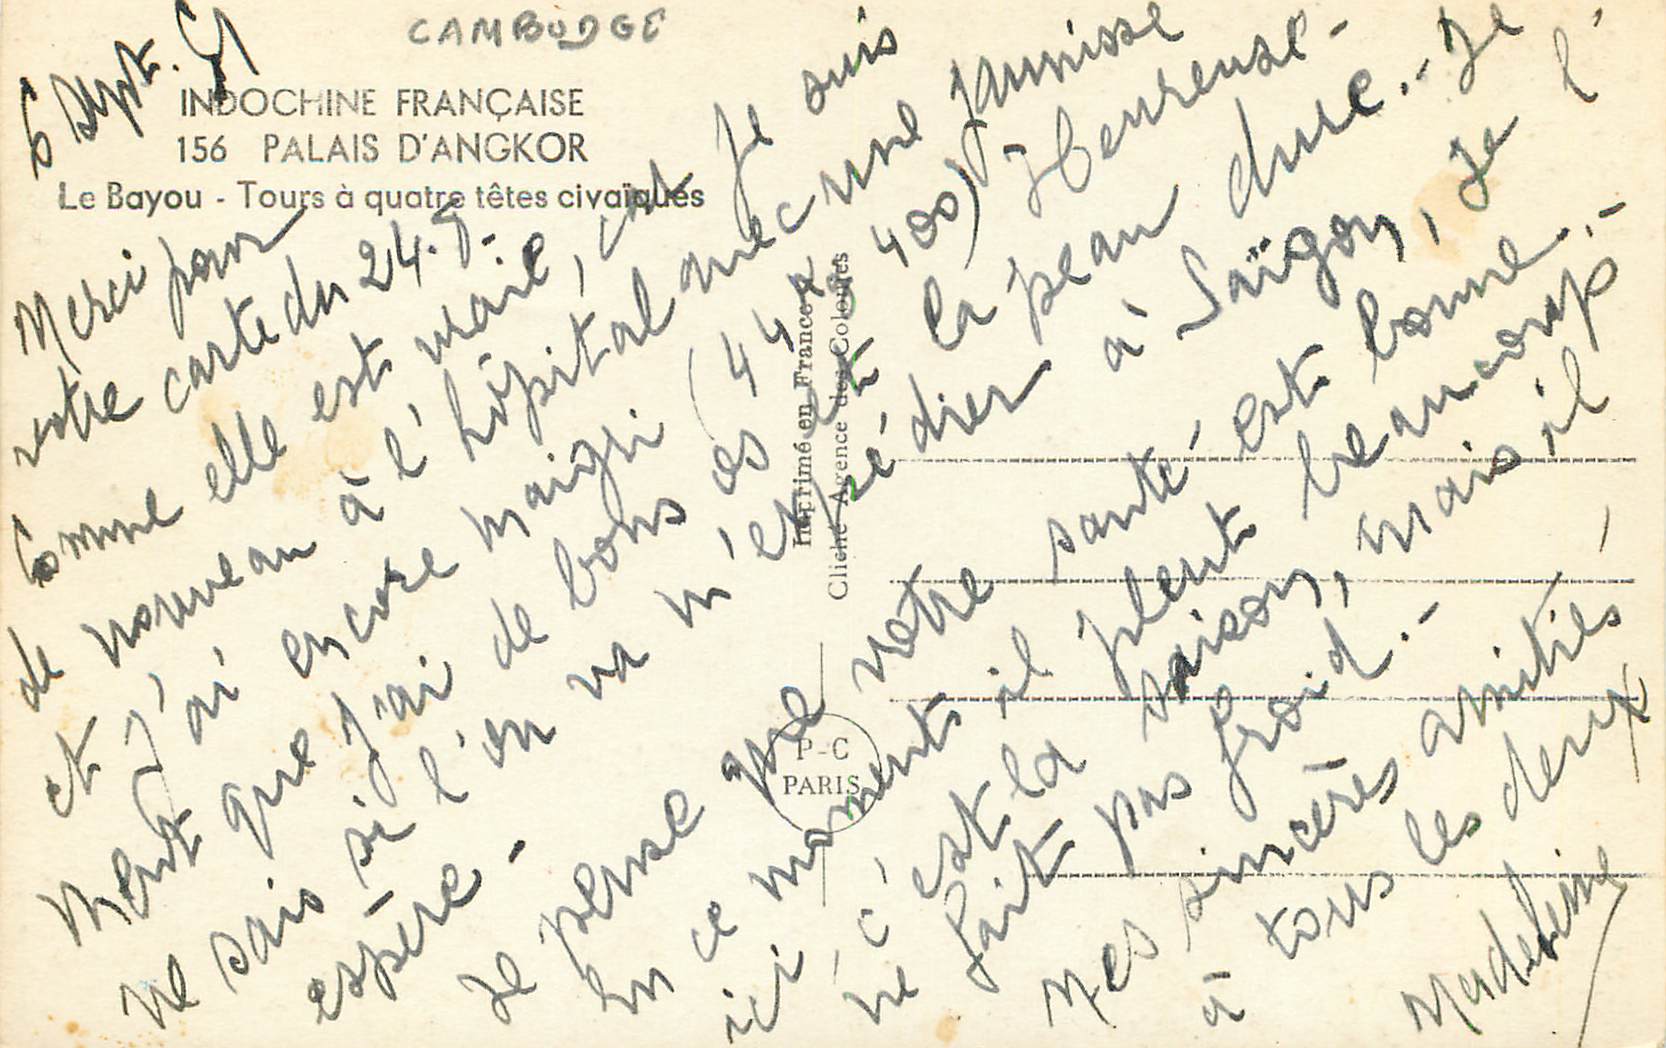 CAMBODGE
6 Sept. 51
INDOCHINE FRANÇAISE
156 PALAIS D'ANGKOR
Le Bayou - Tours à quatre têtes civaïques
Merci pour
votre carte du 24.8.-
Comme elle est vraie, car je suis
de nouveau à l'hôpital avec une jaunisse
et j'ai encore maigri (44 k 400) Heureuse-
ment que j'ai de bons os et la peau dure.- Je
ne sais si l'on va m'expédier à Saïgon, je l'
espère -
Je pense que votre santé est bonne.-
En ce moment il pleut beaucoup
ici, c'est la saison, mais il
ne fait pas froid.-
Mes sincères amitiés
à tous les deux
Madeleine
Imprimé en France
Cliché Agence des Colonies
P-C
PARIS